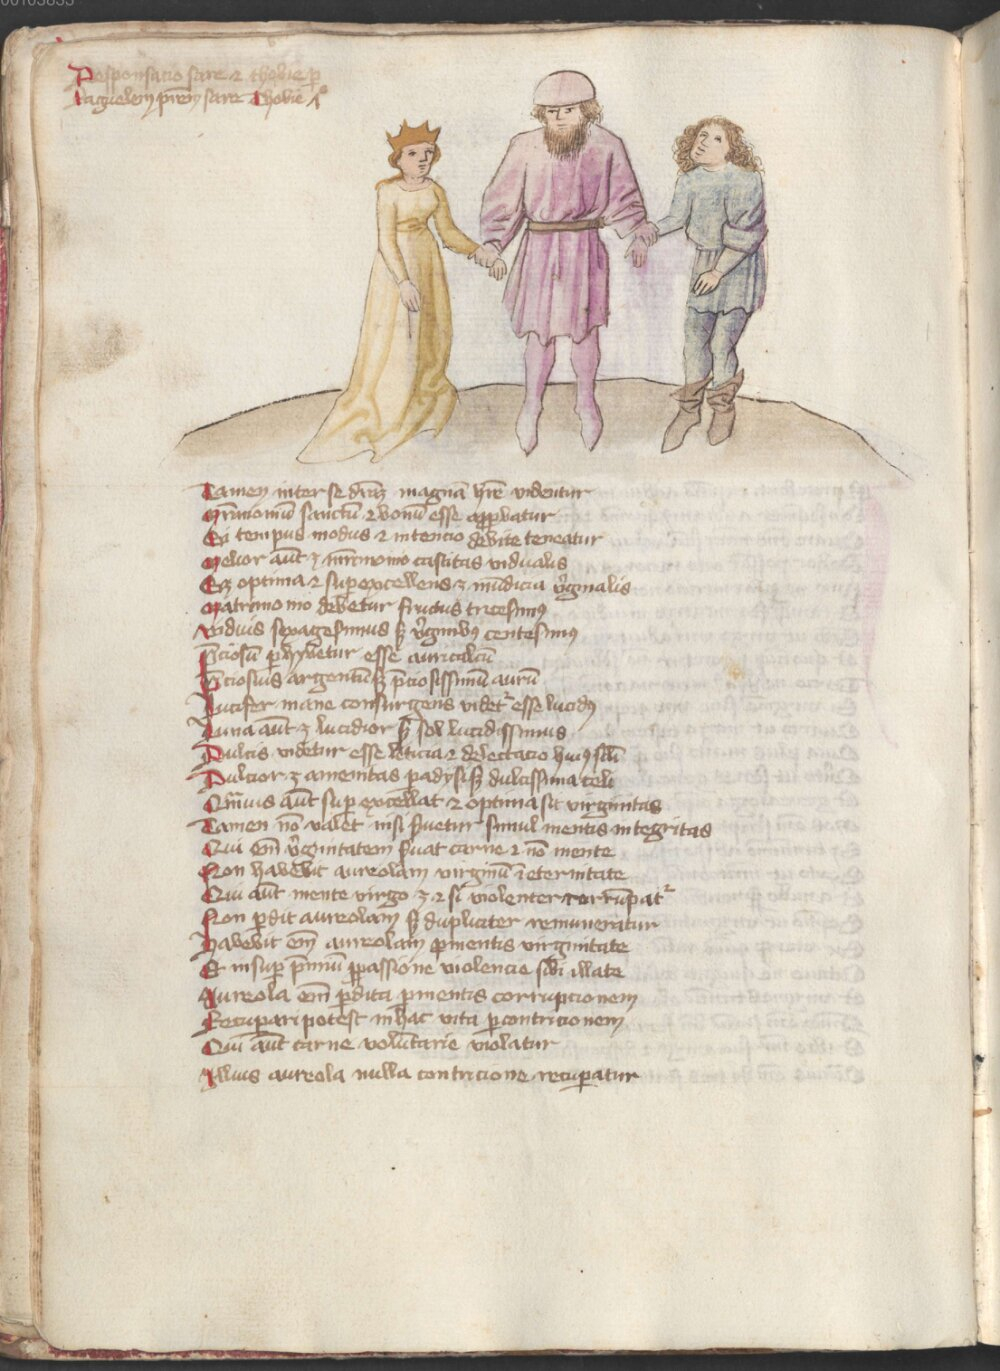 00103833
Desponsacio sare ⁊ thobie p̱
raguelem pr̄em sare Thobie
Tamen inter se dr̄iaꝫ magnā hr̄e videntur
Mr̄imoniū sanctū ⁊ bonū esse appbatur
Si tempus modus ⁊ intencio debite teneatur
Melior aūt ꝫ mr̄imonio castitas vidualis
Sꝫ optima ⁊ supexcellens ꝫ mūdicia v̓ginalis
Matrimonio debetur fructus tricesimꝯ
Viduis sexagesimus sꝫ v̓ginibꝯ centesimꝯ
P̄ciosū phybetur esse auricalcū
P̄ciosius argentū sꝫ p̄ciosissimū aurū
Lucifer mane consurgens videt᷑ esse lucidꝯ
Luna aūt ꝫ lucidior sꝫ sol lucidissimus
Dulcis videtur esse leticia ⁊ delectacio huiꝯ scl̄i
Dulcior ꝫ amenitas padysi sꝫ dulcissima celi
Qm̄uis aūt sup excellat ⁊ optima sit virginitas
Tamen nō valet nisi s̓uetur simul mentis integritas
Qui em̄ v̓ginitatem s̓uat carne ⁊ nō mente
Non habebit aureolam virginū ī eternitate
Qui aūt mente virgo ꝫ ⁊ si violenter corrūpat᷑
Non pdit aureolam sꝫ dupliciter remuneratur
Habebit em̄ aureolam p mentis virginitate
Et insup p̄miū p passione violencie sibi illate
Aureola em̄ pdita p mentis corrupcionem
Recupari potest in hac vita p contricionem
Qui aūt carne volūtarie violatur
Illius aureola nulla contricione recupatur